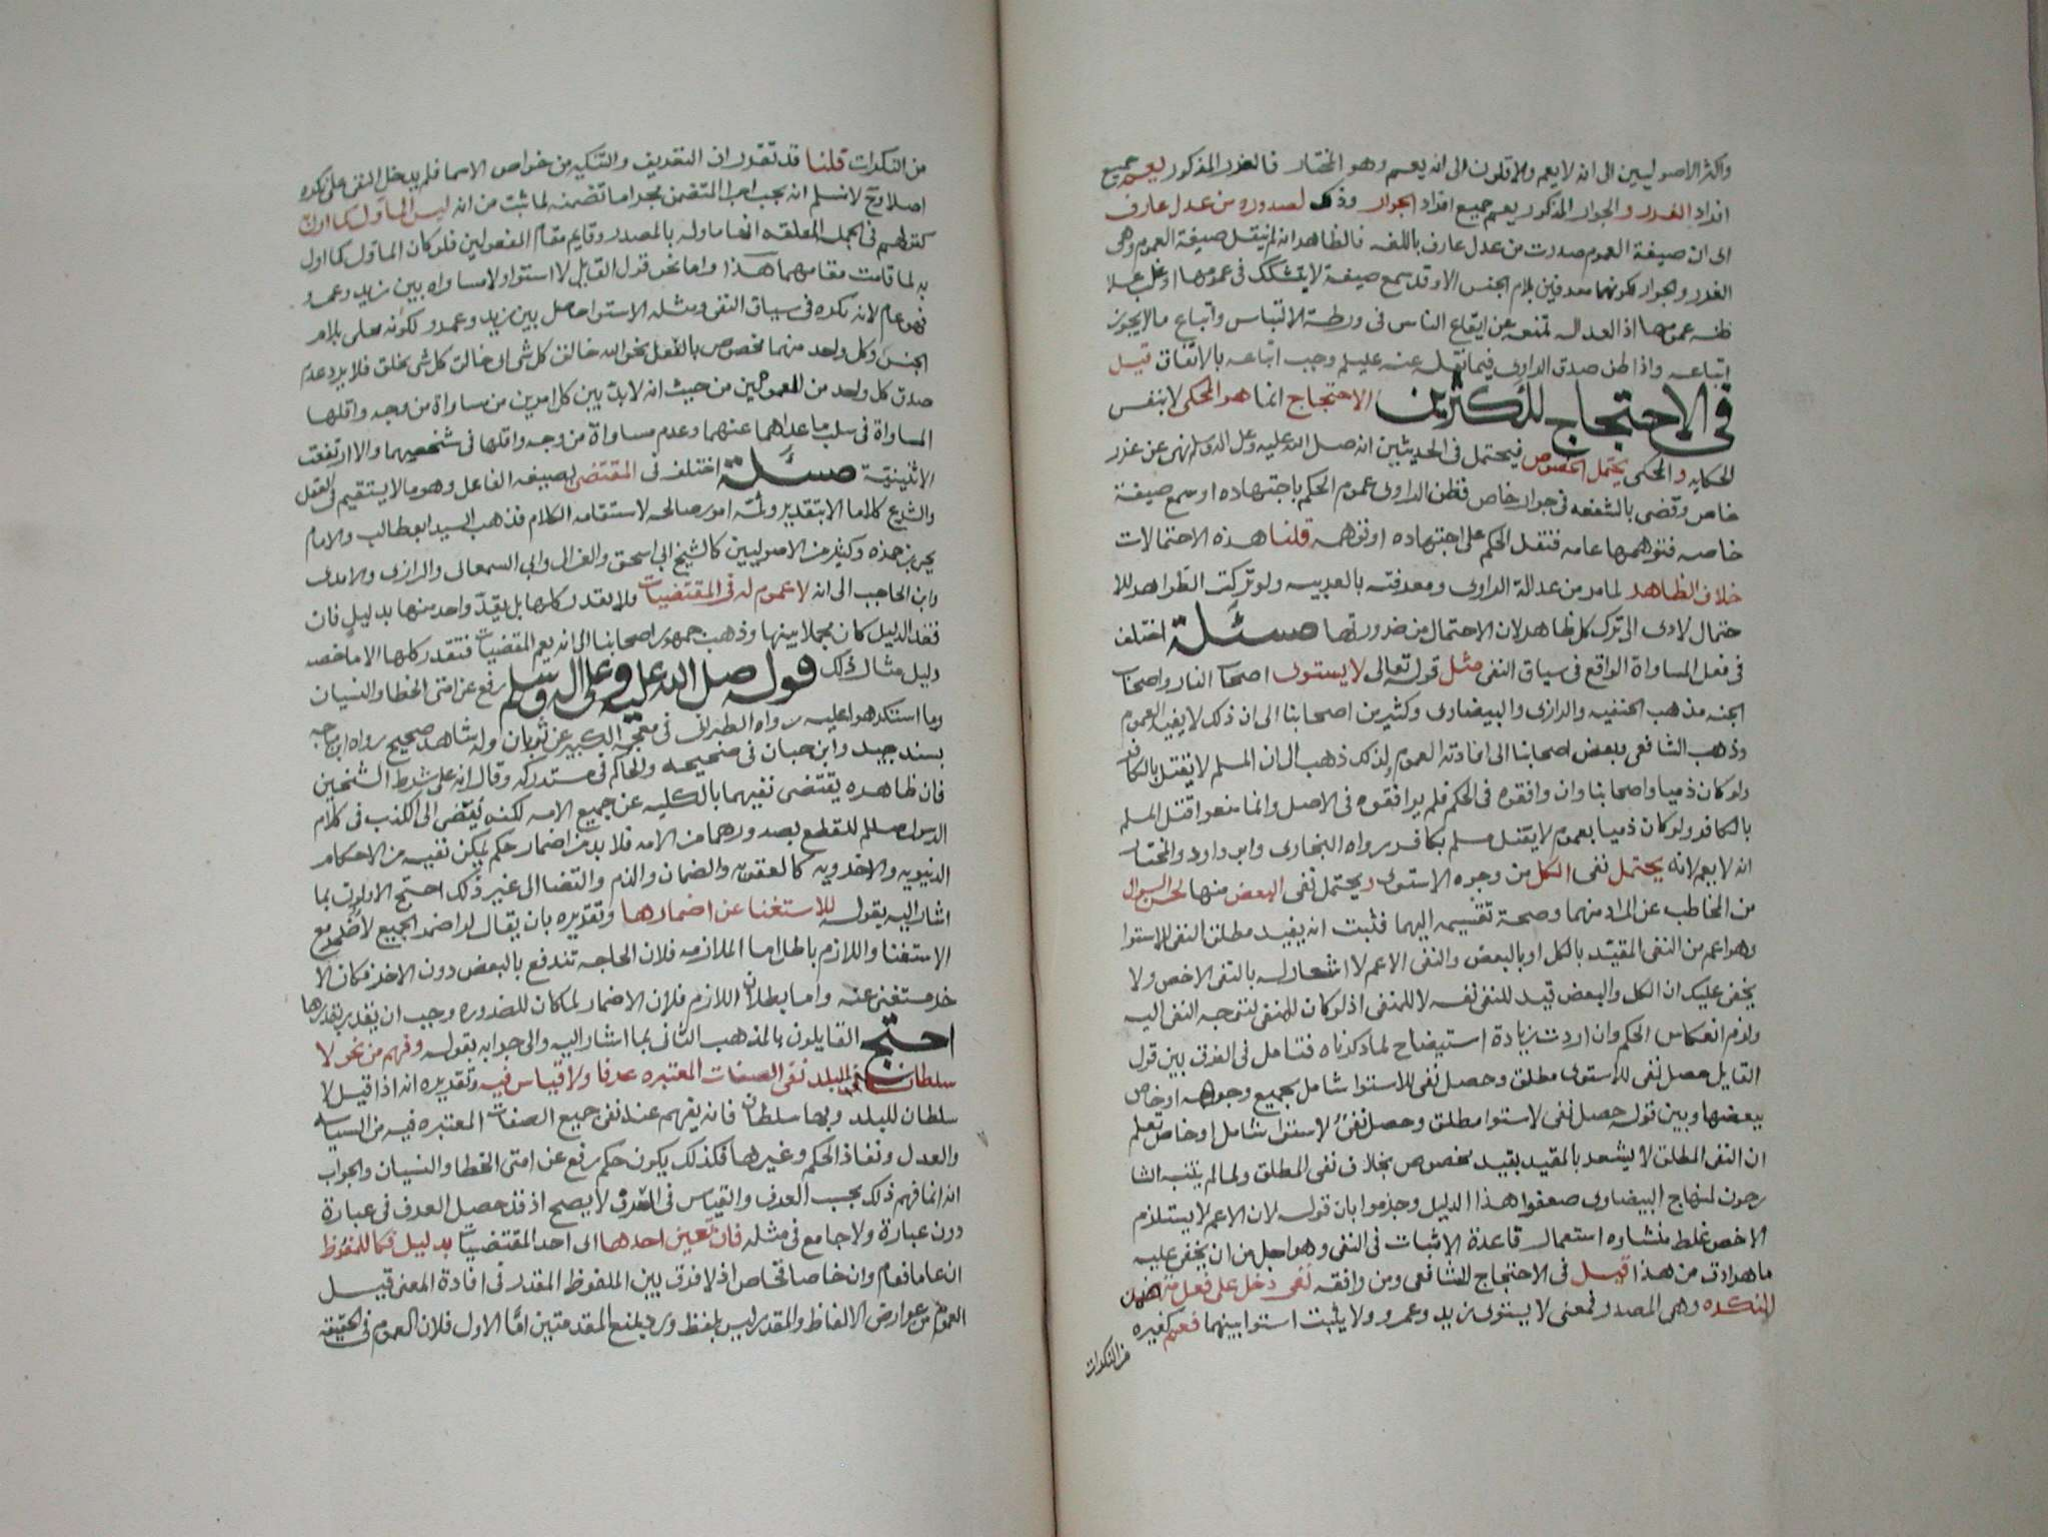 واكثر الاصوليين الى انه لا يعم والاقلون الى انه يعم وهو المختار فالغرر المذكور يعم جميع
افراد الغرر والجوار المذكور يعم جميع افراد الجوار وذلك لصدوره من عدل عارف
اى ان صيغة العموم صدرت من عدل عارف باللغه فالظاهر انه لم ينقل صيغة العموم وهى
الغرر والجوار لكونهما معرفين بلام الجنس الا وقد سمع صيغة لا يتشكك فى عمومها او غلب على
ظنه عمومها اذ العداله تمنعه عن ايقاع الناس فى ورطة الالتباس واتباع ما لا يجوز
اتباعه واذا ظن صدق الراوى فيما نقله عنه عليلم وجب اتباعه بالاتفاق قيل
فى الاحتجاج للاكثرين الاحتجاج انما هو المحكى لا بنفس
الحكايه والمحكى يحتمل الخصوص فيحتمل فى الحديثين انه صلى الله عليه وعلى اله وسلم نهى عن غرر
خاص وقضى بالشفعه فى جوار خاص فظن الراوى عموم الحكم باجتهاده او سمع صيغة
خاصه فتوهمها عامه فنقل الحكم على اجتهاده او توهمه قلنا هذه الاحتمالات
خلاف الظاهر لما مر من عدالة الراوى ومعرفته بالعربيه ولو تركت الظواهر للا
حتمال لادى الى ترك كل ظاهر لان الاحتمال من ضرورتها مسئلة اختلف
فى فعل المساواة الواقع فى سياق النفى مثل قوله تعالى لا يستوى اصحاب النار واصحاب
الجنه مذهب الحنفيه والرازى والبيضاوى وكثير من اصحابنا الى ان ذلك لا يفيد العموم
وذهب الشافعى وبعض اصحابنا الى افادته العموم ولذلك ذهب الى ان المسلم لا يقتل بالكافر
ولو كان ذميا واصحابنا وان وافقوه فى الحكم فلم يوافقوه فى الاصل وانما منعوا قتل المسلم
بالكافر ولو كان ذميا بعموم لا يقتل مسلم بكافر رواه البخارى وابو داود والمختار
انه لا يعم لانه يحتمل نفى الكل من وجوه الاستوى ويحتمل نفى البعض منها لحسن السوال
من المخاطب عن المراد منهما وصحة تقسيمه اليهما فثبت انه يفيد مطلق النفى للاستوا
وهو اعم من النفى المقيد بالكل او بالبعض والنفى الاعم لا اشعار له بالنفى الاخص ولا
يخفى عليك ان الكل والبعض قيد للنفى نفسه لا للمنفى اذ لو كان للمنفى لتوجه النفى اليه
ولزم انعكاس الحكم وان اردت زيادة استيضاح لما ذكرناه فتامل فى الفرق بين قول
القايل حصل نفى للاستوى مطلق وحصل نفى للاستوا شامل لجميع وجوهه او خاص
ببعضها وبين قوله حصل نفى لاستوا مطلق وحصل نفىٌ لاستوا شامل او خاص تعلم
ان النفى المطلق لا يشعر بالمقيد بقيد مخصوص بخلاف نفى المطلق ولما لم يتنبه الشا
رحون لمنهاج البيضاوى ضعفوا هذا الدليل وجزموا بان قوله لان الاعم لا يستلزم
الاخص غلط منشاوه استعمال قاعدة الاثبات فى النفى وهو اجل من ان يخفى عليه
ما هو ادق من هذا قيل فى الاحتجاج للشافعى ومن وافقه نفى دخل على فعل متضمن
للنكره وهى المصدر فمعنى لا يستوى زيد وعمرو ولا يثبت استوا بينهما فعم كغيره
من النكرات
من النكرات قلنا قد تقرر ان التعريف والتنكير من خواص الاسما فلم يدخل النفى على نكره
اصلا وح لا نسلم انه يجب اجرا المتضمن مجرا ما تضمنه لما ثبت من انه ليس الماول كما اول به
كقولهم فى الجمله المعلقه انها ماوله بالمصدر وقايم مقام المفعولين فلو كان الماول كما اول
به لما قامت مقامهما هكذا واما نحو قول القايل لا استوا ولا مساواه بين زيد وعمرو
فهو عام لانه نكره فى سياق النفى ومثله الاستوا حاصل بين زيد وعمرو لكونه محلى بلام
الجنس وكل واحد منهما مخصوص بالفعل نحو الله خالق كل شى اى خالق كل شى يخلق فلا يرد عدم
صدق كل واحد من العمومين من حيث انه لا بد بين كل امرين من مساواة من وجه واقلها
المساواة فى سلب ما عداهما عنهما وعدم مساواة من وجه واقلها فى شخصيهما والا ارتفعت
الاثنينية مسئلة اختلف فى المقتضى بصيغه الفاعل وهو ما لا يستقيم فى العقل
والشرع كلاما الا بتقدير وثمه امور صالحه لاستقامه الكلام فذهب السيد ابو طالب والامام
يحيى بن حمزه وكثير من الاصوليين كالشيخ ابى اسحق والغزالى وابى السمعانى والرازى والامدى
وابن الحاجب الى انه لا عموم له فى المقتضيات ولا يقدر كلها بل يقدر واحد منها بدليل فان
فقد الدليل كان مجملا بينها وذهب جمهور اصحابنا الى انه يعم المقتضيات فتقدر كلها الا ما خصه
دليل مثال ذلك قوله صلى الله عليه وعلى اله وسلم رفع عن امتى الخطا والنسيان
وما استكرهوا عليه رواه الطبرانى فى معجمه الكبير عن ثوبان وله شاهد صحيح رواه ابن ماجه
بسند جيد وابن حبان فى صحيحه والحاكم فى مستدركه وقال انه على شرط الشيخين
فان ظاهره يقتضى نفيهما بالكليه عن جميع الامه لكنه يُفضى الى الكذب فى كلام
الرسول صللم للقطع بصدورهما من الامه فلا بد من اضمار حكم يمكن نفيه من الاحكام
الدنيويه والاخرويه كالعقوبه والضمان والذم والقضا الى غير ذلك احتج الاولون بما
اشار اليه بقوله للاستغنا عن اضمارها وتقديره بان يقال لو اضمر الجميع لاضمر مع
الاستغنا واللازم باطل اما الملازمه فلان الحاجه تندفع بالبعض دون الاخر فكان الا
خر مستغنى عنه واما بطلان اللازم فلان الاضمار لما كان للضروره وجب ان يقدر بقدرها
احتج القايلون بالمذهب الثانى بما اشار اليه والى جوابه بقوله وفهم من نحو لا
سلطان للبلد نفى الصفات المعتبره عرفا ولا قياس فيه وتقديره انه اذا قيل لا
سلطان للبلد وبها سلطان فانه يفهم عند نفى جميع الصفات المعتبره فيه من السياسه
والعدل ونفاذ الحكم وغيرها فكذلك يكون حكم رفع عن امتى الخطا والنسيان والجواب
انه انما فهم ذلك بحسب العرف والقياس فى العرف لا يصح اذ قد حصل العرف فى عبارة
دون عبارة ولا جامع فى مثله فان تعين احدها اى احد المقتضيات بدليل فكالملفوظ
ان عاما فعام وان خاصا فخاص اذ لا فرق بين الملفوظ المقدر فى افادة المعنى قيل
العموم من عوارض الالفاظ والمقدر ليس بلفظ ورد بمنع المقدمتين امّا الاول فلان العموم فى الحقيقه